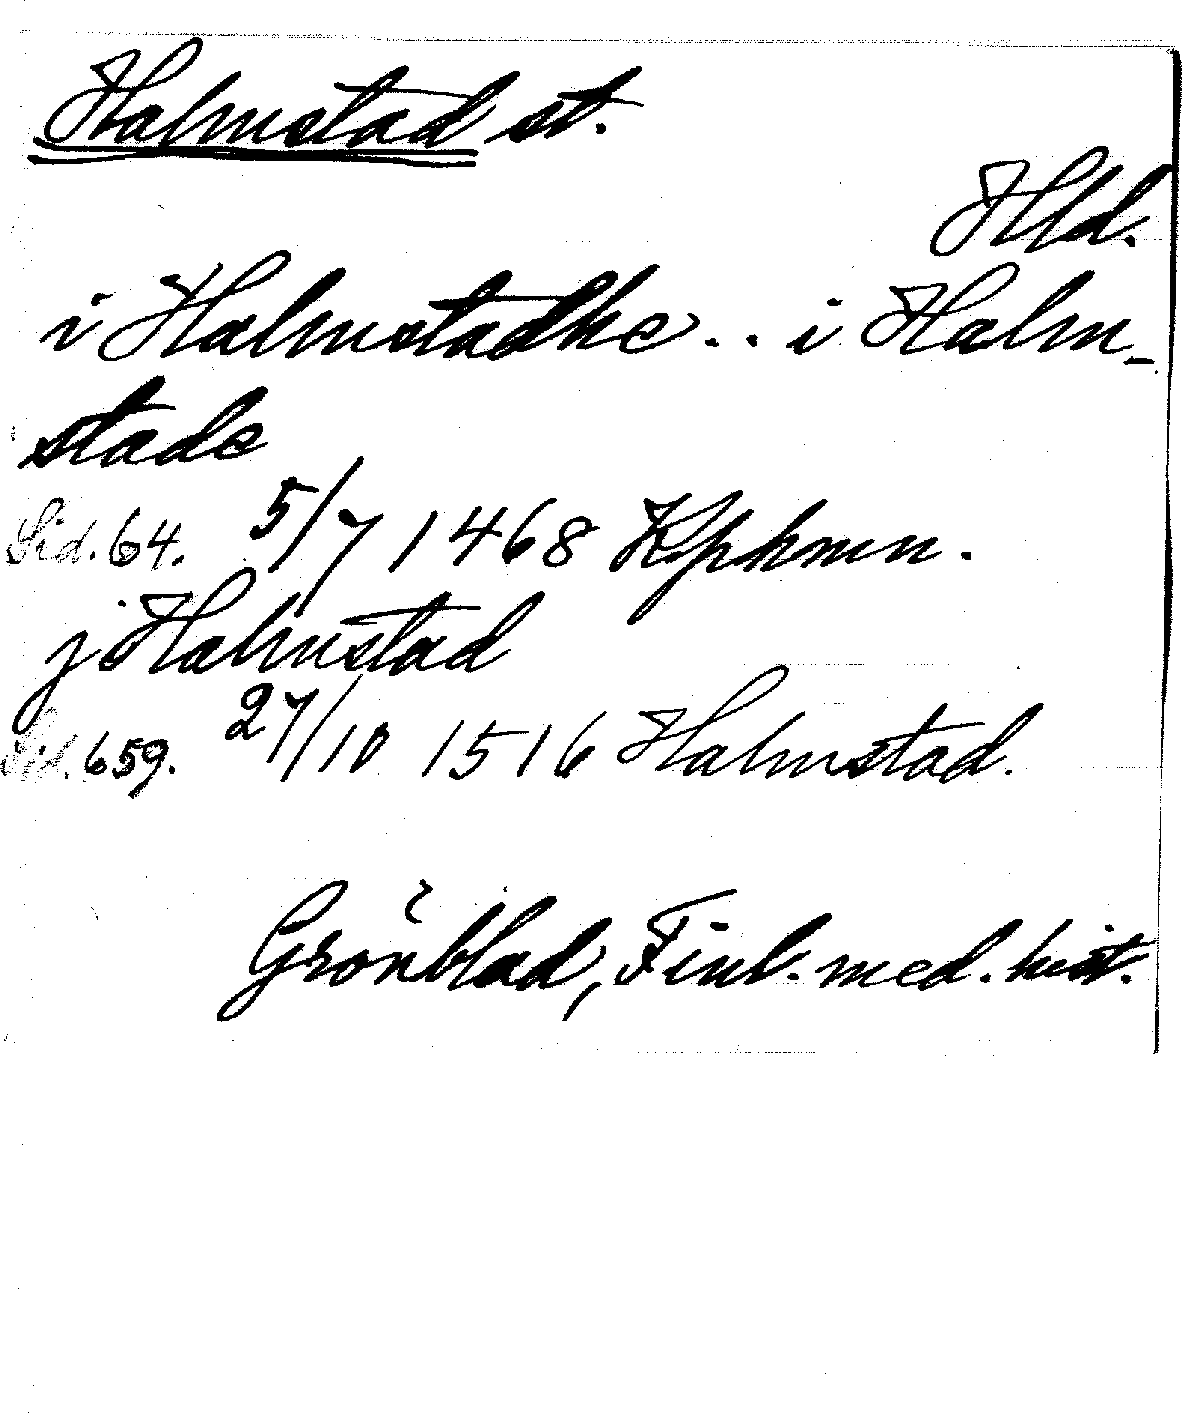 Halmstad st.
Hld.
i Halmstadhe . . i Halm-
stade
Sid. 64. 5/7 1468 Kphmn.
j Halmstad
Sid. 659. 27/10 1516 Halmstad.
Grönblad, Finl. med. hist.